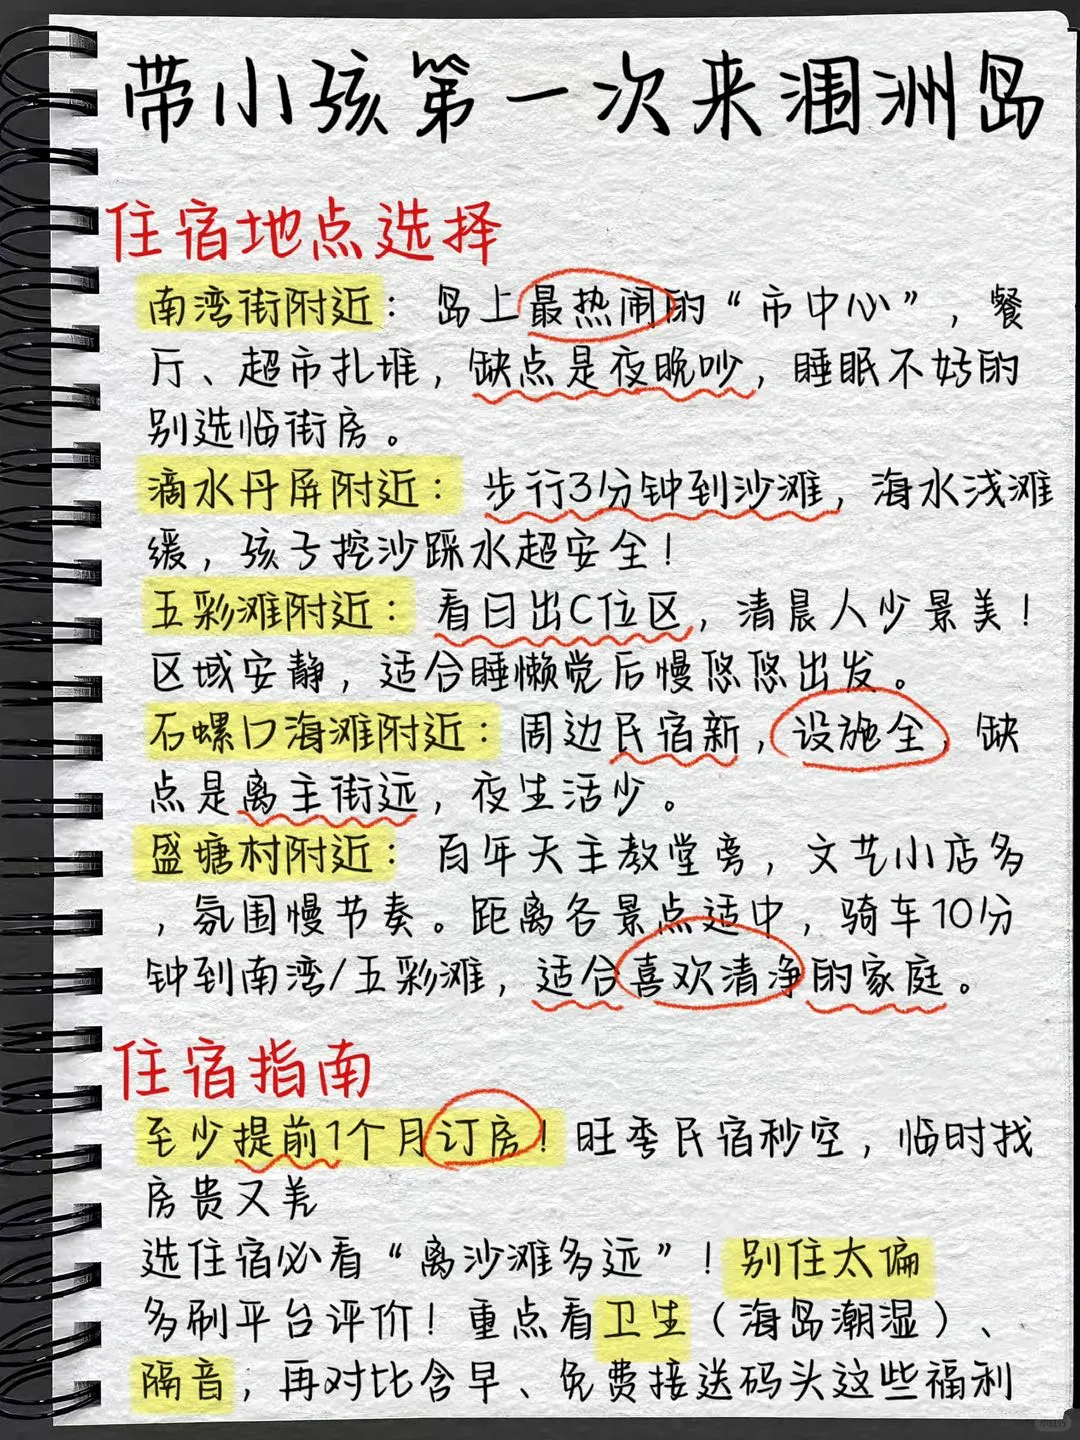 带小孩第一次来涠洲岛
住宿地点选择
南湾街附近：岛上最热闹的“市中心”，餐
厅、超市扎堆，缺点是夜晚吵，睡眠不好的
别选临街房。
滴水丹屏附近：步行3分钟到沙滩，海水浅滩
缓，孩子挖沙踩水超安全！
五彩滩附近：看日出C位区，清晨人少景美！
区域安静，适合睡懒觉后慢悠悠出发。
石螺口海滩附近：周边民宿新，设施全，缺
点是离主街远，夜生活少。
盛塘村附近：百年天主教堂旁，文艺小店多
，氛围慢节奏。距离各景点适中，骑车10分
钟到南湾/五彩滩，适合喜欢清净的家庭。
住宿指南
至少提前1个月订房！旺季民宿秒空，临时找
房贵又差
选住宿必看“离沙滩多远”！别住太偏
多刷平台评价！重点看卫生（海岛潮湿）、
隔音，再对比含早、免费接送码头这些福利